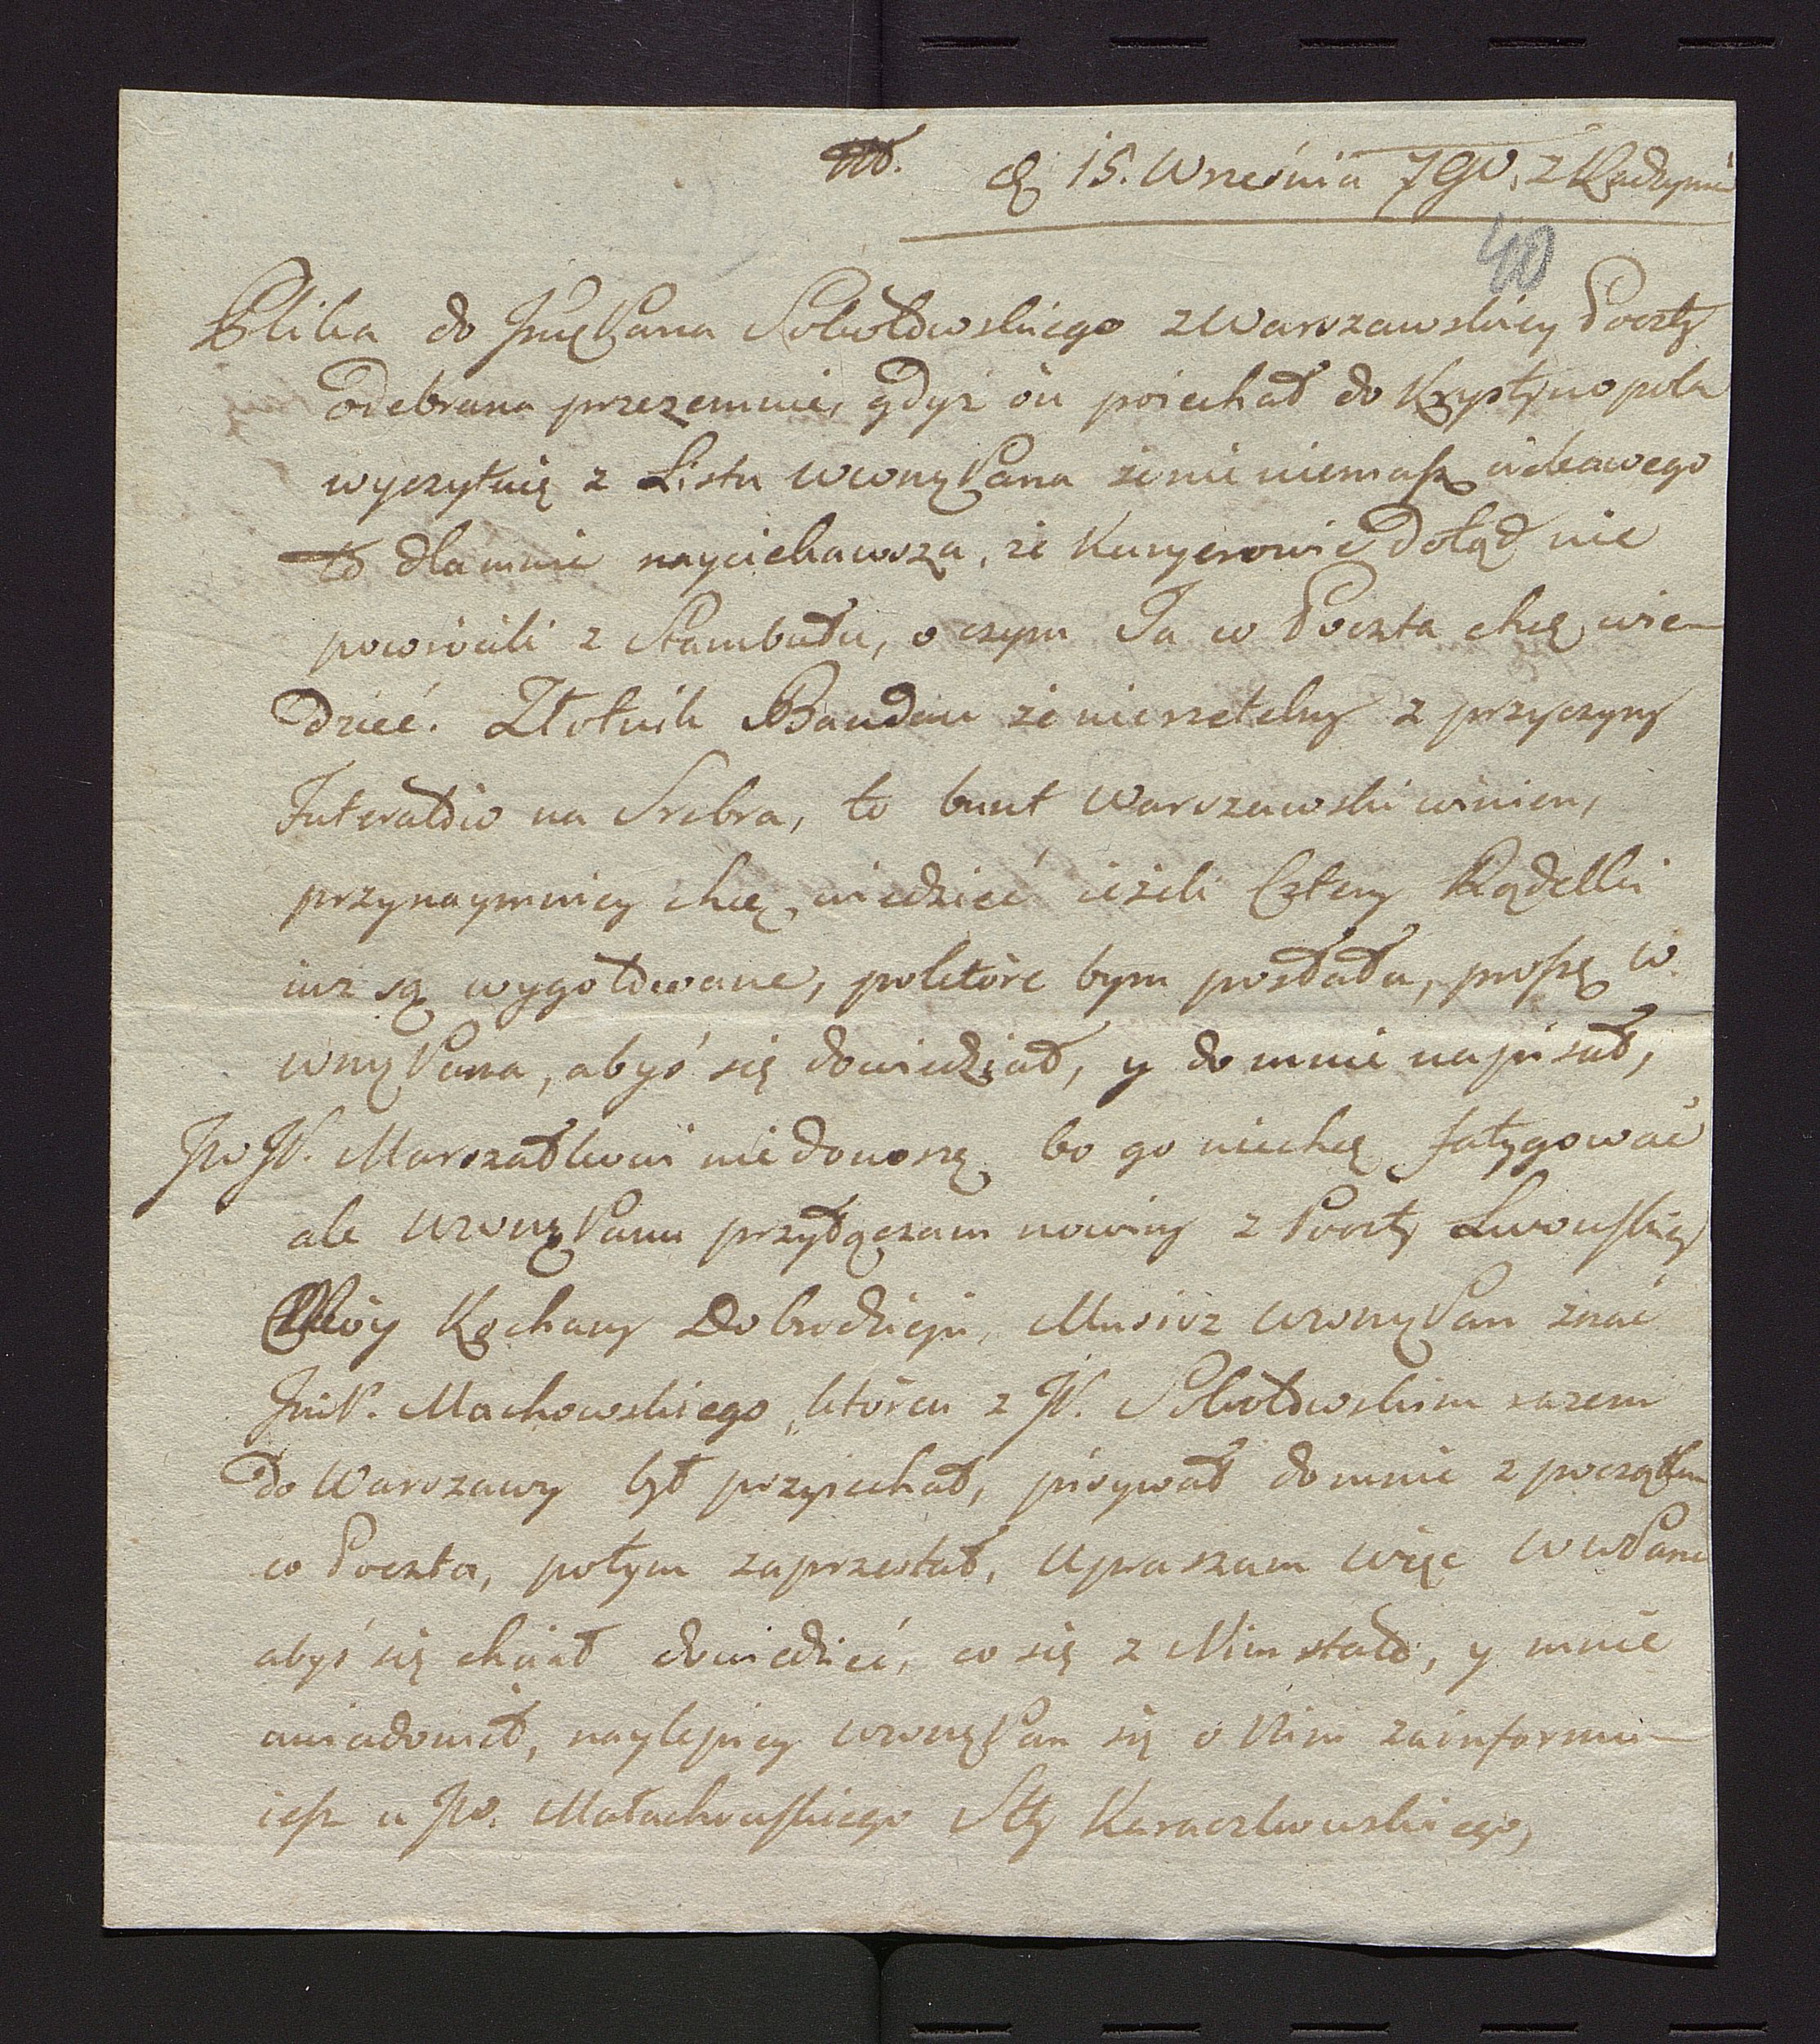 d. 15. Września 790. z Radzynia
40
Plika do Jmę Pana Sobolewskiego z Warszawskiey Poczty
odebrana przezemnie, gdyż on poiechał do Krystynopola
wyczytuię z Listu WWMę Pana że nic niemasz ciekawego
to dla mnie nayciekawsza, że Kuryerowie dotąd nie
powrócili z Stambułu, o czym Ja co Poczta chcę wie-
dzieć. Złotnik Bandau że nierzetelny z przyczyny
Futerałów na Srebra, to bunt Warszawski winien,
przynaymniey chcę wiedzieć ieżeli Cztery Rądelki
iuż są wygotowane, poktóre bym posłała, proszę W.
WMę Pana, abyś się dowiedział, y do mnie napisał,
JW JP. Marszałkowi nie donoszę bo go niechcę fatygować
ale WWMę Panu przyłączam nowiny z Poczty Lwowskiey
Móy Kochany Dobrodzieju, Musisz WWMę Pan znać
JmP. Machowskiego, któren z JP. Sobolewskim razem
do Warszawy był przyiechał, pisywał do mnie z początku
co Poczta, potym zaprzestał, Upraszam więc WWPana
abyś się chciał dowiedzieć, co się z Nim stało, y mnie
uwiadomił, naylepiey WWMę Pan się o Nim zainformu-
iesz u JP. Małachowskiego Stty Karaczkowskiego,